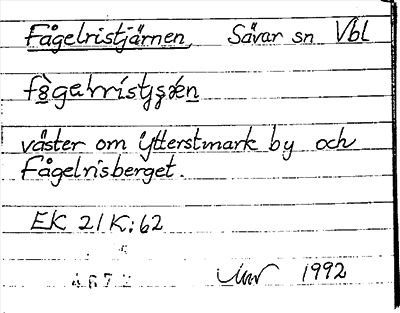 Fågelristjärnen, Sävar sn Vbl
väster om Ytterstmark by och
Fågelrisberget.
EK 21K:62
1992